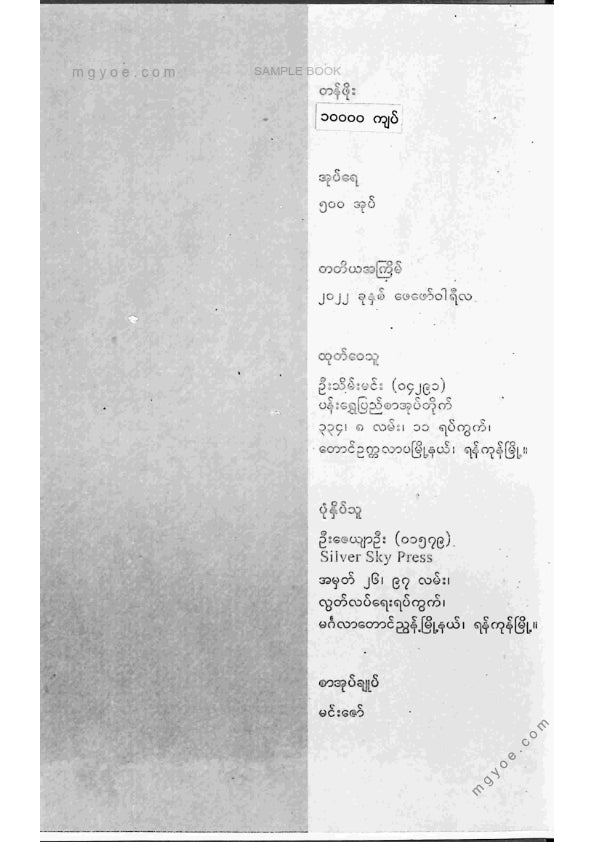 mgyoe.com
SAMPLE BOOK
တန်ဖိုး
၁၀၀၀၀ ကျပ်
အုပ်ရေ
၅၀၀ အုပ်
တတိယအကြိမ်
၂၀၂၂ ခုနှစ် ဖေဖော်ဝါရီလ
ထုတ်ဝေသူ
ဦးသိမ်းမင်း (၀၄၂၉၁)
ပန်းရွှေပြည်စာအုပ်တိုက်
၃၃၄၊ ၈ လမ်း၊ ၁၁ ရပ်ကွက်၊
တောင်ဥက္ကလာပမြို့နယ်၊ ရန်ကုန်မြို့။
ပုံနှိပ်သူ
ဦးဇေယျာဦး (၀၁၅၇၉)
Silver Sky Press
အမှတ် ၂၆၊ ၉၇ လမ်း၊
လွတ်လပ်ရေးရပ်ကွက်၊
မင်္ဂလာတောင်ညွန့်မြို့နယ်၊ ရန်ကုန်မြို့။
စာအုပ်ချုပ်
မင်းဇော်
mgyoe.com